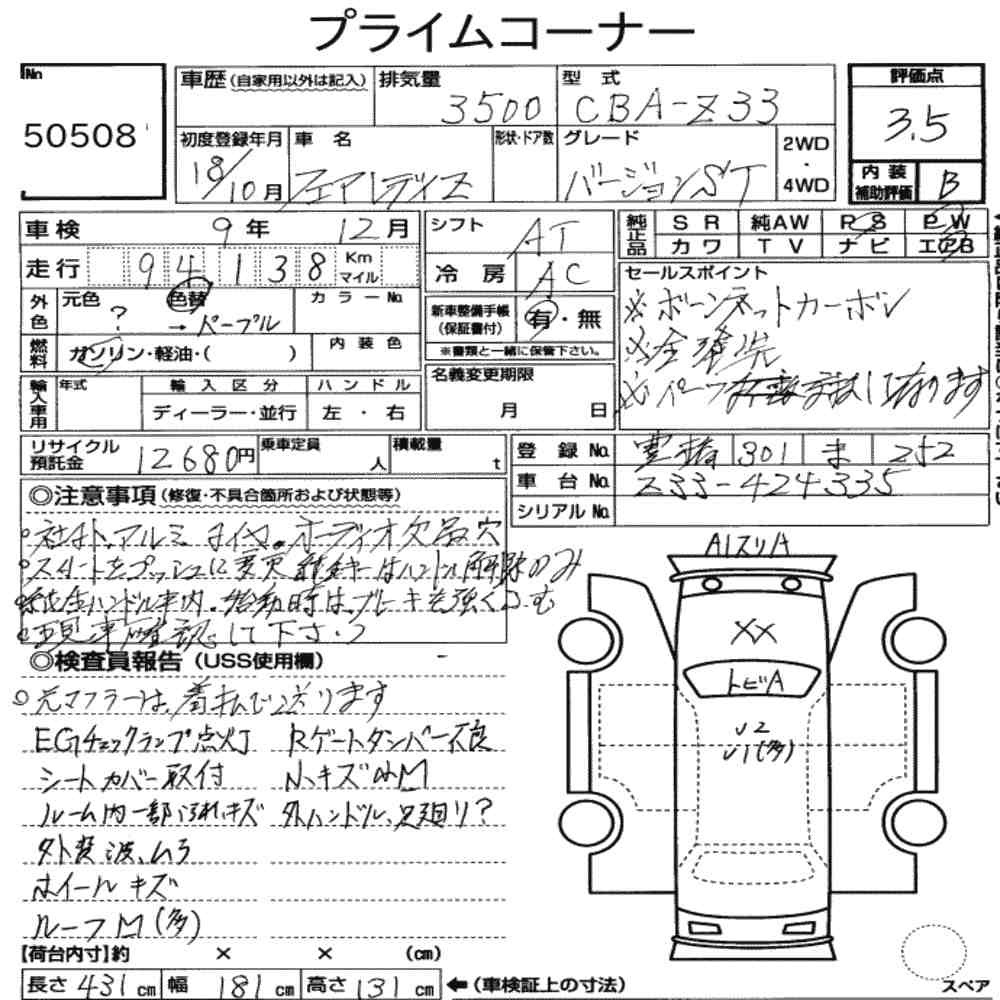 プライムコーナー
No
50508
車歴(自家用以外は記入)
排気量
3500
型式
CBA-Z33
評価点
3.5
初度登録年月
18/10月
車名
フェアレディZ
形状・ドア数
グレード
バージョンST
2WD
・
4WD
内装
補助評価
B
車検
9年 12月
走行
94138
Km
マイル
シフト
AT
冷房
AC
純正品
SR 純AW PS PW
カワ TV ナビ エアB
外色
元色
?
色替
→ パープル
カラーNo.
燃料
ガソリン・軽油・( )
内装色
新車整備手帳
(保証書付)
有・無
※書類と一緒に保管下さい。
セールスポイント
※ボーンネットカーボン
※全塗
※パーツ
しております
輸入車用
年式
輸入区分
ディーラー・並行
ハンドル
左・右
名義変更期限
月 日
リサイクル
預託金
12680円
乗車定員
人
積載量
t
登録No.
豊橋 301 ま 252
車台No.
Z33-424335
シリアルNo.
◎注意事項(修復・不具合箇所および状態等)
○社外、アルミ、タイヤ。オーディオ欠品穴
○スタートをプッシュに変更 純キーはハンドル解除のみ
○純正ハンドル車内。始動時はブレーキを強くふむ
○現車確認して下さい
◎検査員報告(USS使用欄)
○元マフラーは、着払で送ります
EGチェックランプ点灯
Rゲートダンパー不良
シートカバー取付
N、キズ M
ルーム内一部 汚れ、キズ
外ハンドル、足廻り?
外装 波、ムラ
ホイール キズ
ルーフM(多)
A1スリA
XX
トビA
U2
U1(多)
【荷台内寸】約 × × (cm)
長さ 431 cm 幅 181 cm 高さ 131 cm ←(車検証上の寸法)
スペア